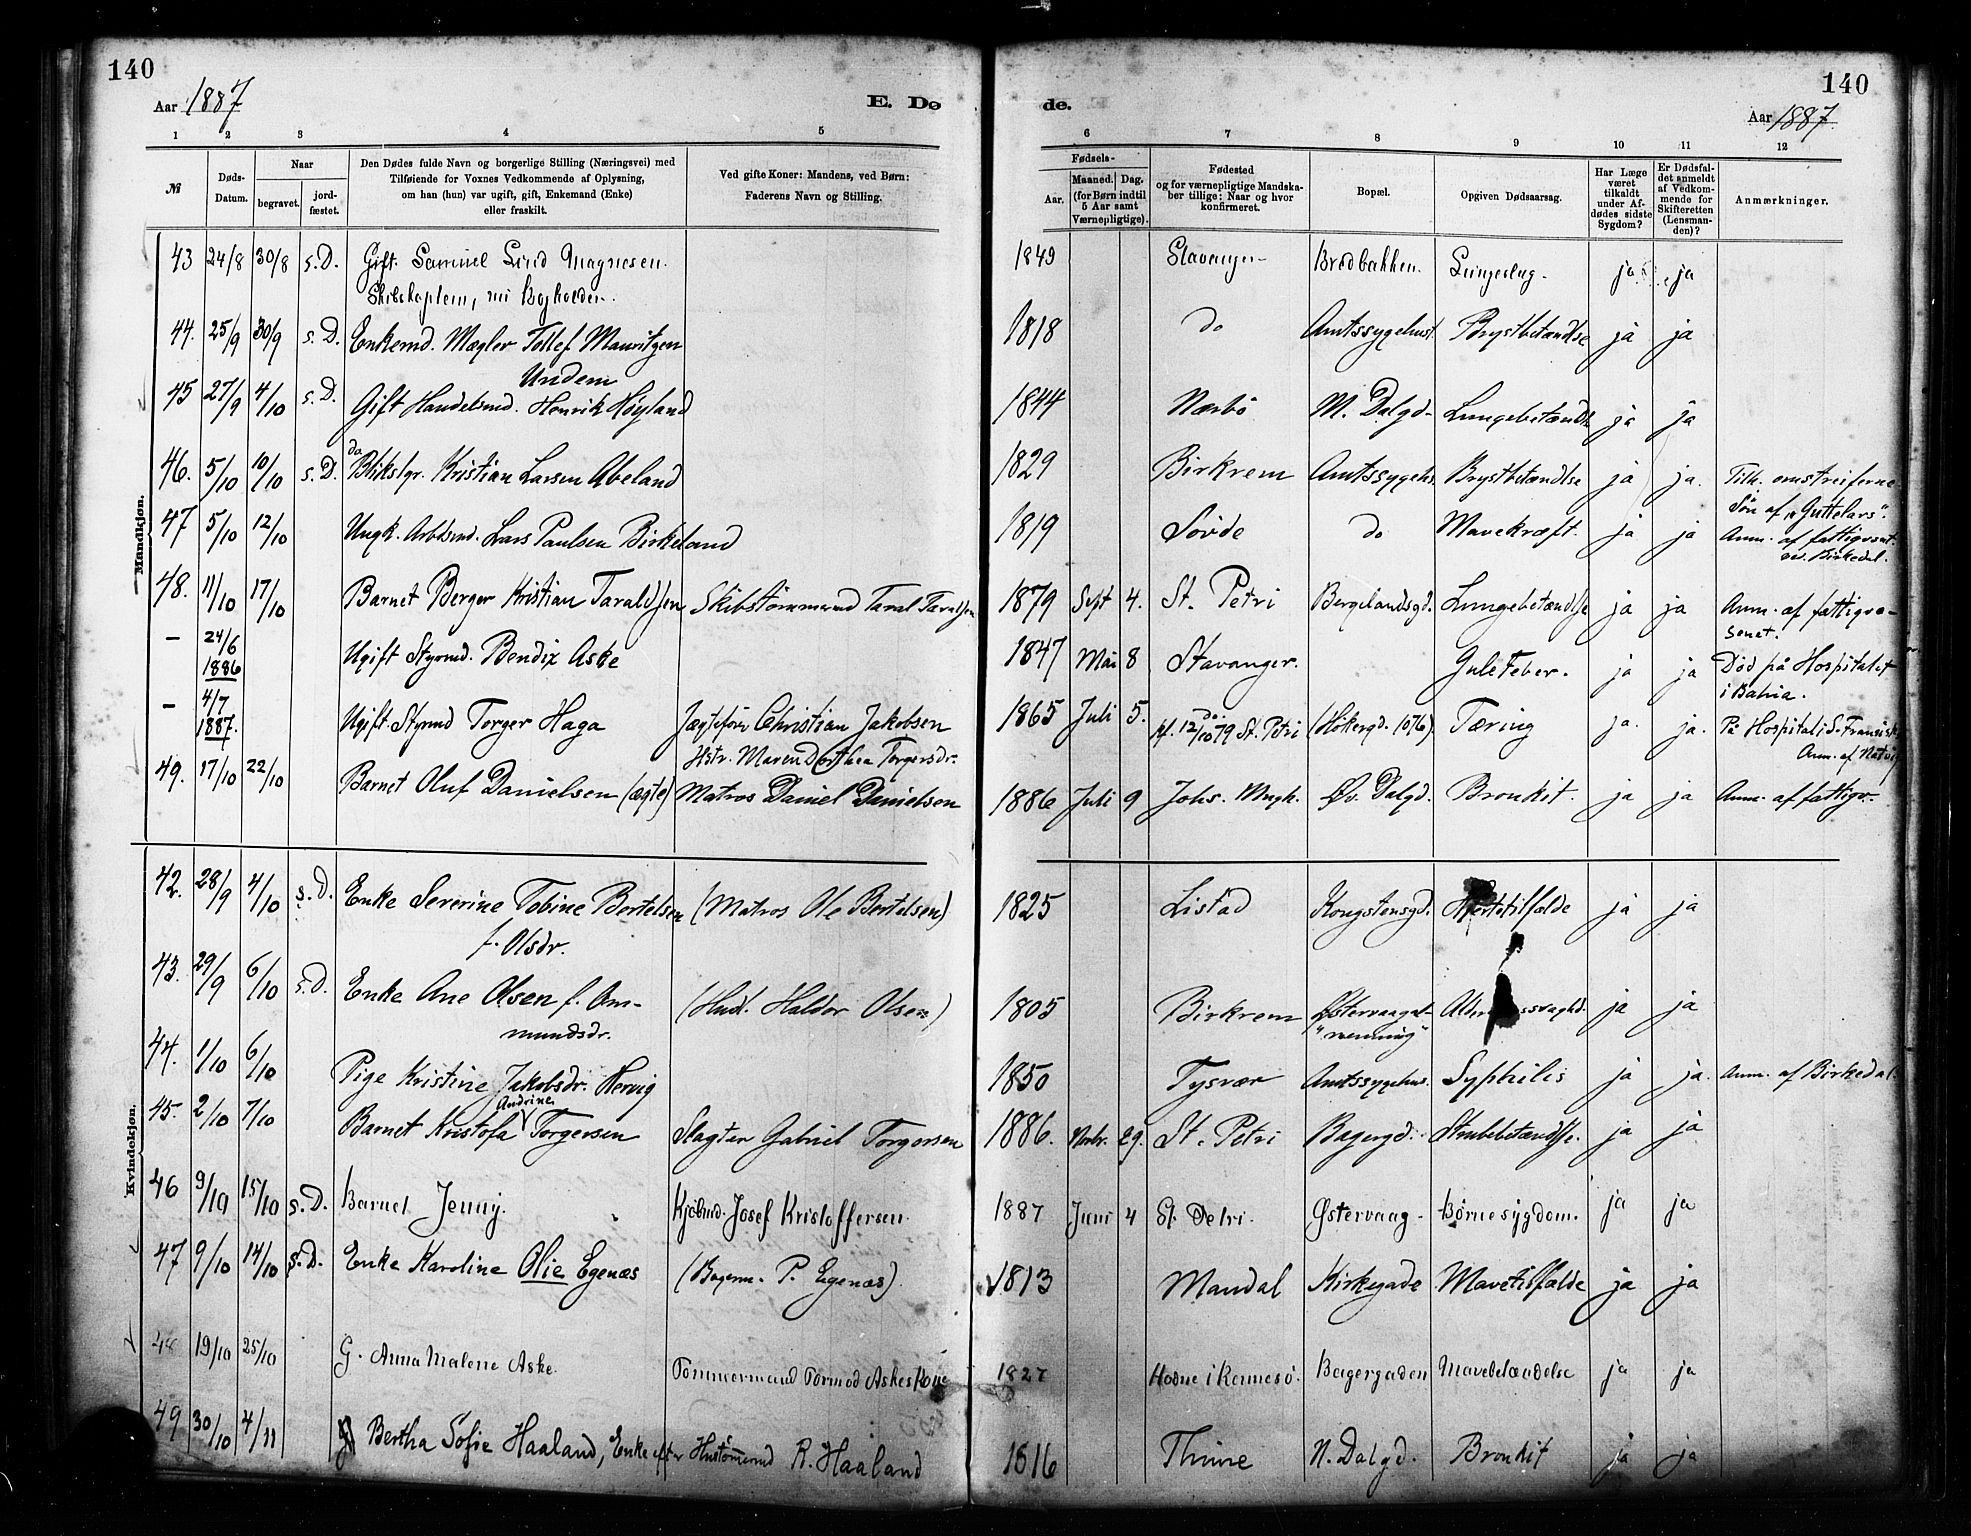 140
140
Aar 1887
E. Dø
de.
Aar 1887.
1 2 3 4 5 6 7 8 9 10 11 12
№
Døds-
Datum.
Naar
begravet.
jord-
fæstet.
Den Dødes fulde Navn og borgerlige Stilling (Næringsvei) med
Tilføiende for Voxnes Vedkommende af Oplysning,
om han (hun) var ugift, gift, Enkemand (Enke)
eller fraskilt.
Ved gifte Koner: Mandens, ved Børn:
Faderens Navn og Stilling.
Fødsels-
Aar.
Maaned.
Dag.
(for Børn indtil
5 Aar samt
Værnepligtige).
Fødested
og for værnepligtige Mandska-
ber tillige: Naar og hvor
konfirmeret.
Bopæl.
Opgiven Dødsaarsag.
Har Læge
været
tilkaldt
under Af-
dødes sidste
Sygdom?
Er Dødsfal-
det anmeldt
af Vedkom-
mende for
Skifteretten
(Lensman-
den)?
Anmærkninger.
Mandkjøn.
43 24/8 30/8 s.D. Gift. Samuel Lind Magnesen. 1849 Stavanger Bredbakken. ja ja
44. 25/9 30/9 s.D. Enkemd. Mægler Tollef Mauritzen 1818 do Amtssygehuset Brystbetændlse ja ja
Undem
45 27/9 4/10 s.D. Gift Handelsmd. Henrik Høyland 1844 Nærbø M. Dalgd. Lungebetændls ja ja
46. 5/10 10/10 s.D. do Blikslgr. Kristian Larsen Abeland 1829 Birkrem Amtssygehs. Brystbetændlse ja ja. Tilh. omstreiferne
Søn af "Guttelars".
47 5/10 12/10 Ungk. Arbdsmd. Lars Paulsen Birkeland 1819 Søvde do Mavekræft. ja ja Anm. af fattigvsnt.
Birkedal.
48. 11/10 17/10 Barnet Berger Kristian Taraldsen Skibstømmermd Taral Taralsen 1879 Sept 4. St. Petri Bergelandsgd. Lungebetændlse ja ja Anm. af fattigvæ-
senet.
— 24/6 1886 Ugift Styrmd. Bendix Aske 1847 Mai 8 Stavanger. Gule Feber. ja ja Død på Hospitalet
i Bahia.
— 4/7 1887. Ugift Styrmd Torger Haga Jægtefører Christian Jakobsen 1865 Juli 5. do. kf. 12/10 79 St. Petri (Høkergd. 1076) Tæring ja. ja. På Hospital i S. Fransisk
Hstr. Maren Dorthea Torgersdr.
49. 17/10 22/10 Barnet Oluf Danielsen (ægte) Matros Daniel Danielsen 1886 Juli 9 Johs. Mngh. Øv. Dalgd. Bronkit. ja ja Anm. af fattigv.
Kvindekjøn.
42. 28/9 4/10 s.D. Enke Severine Tobine Bertelsen (Matros Ole Bertelsen) 1825 Listad Kongstensgd. Hjertetilfælde ja ja
f. Olsdr.
43. 29/9 6/10 s.D. Enke Ane Olsen f. Am- (Husf. Haldor Olsen) 1805 Birkrem ja ja
mundsdr.
44. 1/10 6/10 Pige Kristine Jakobsdr. Hervig 1850 Tysvær Amtssygehus. Syphilis ja ja. Anm. af Birkedal.
45. 2/10 7/10 Barnet Kristofa Andrine Torgersen Slagter Gabriel Torgersen 1886. Novbr. 29. St. Petri Bagergd. Strubebetændlse. ja ja
46 9/10 15/10 s.D. Barnet Jenny. Kjøbmd. Josef Kristoffersen. 1887 Juni 4 St. Petri. Østervaag. Børnesygdom. ja ja
47 9/10 14/10 s.D. Enke Karoline Olie Egenæs (Bagerm. P. Egenæs). 1813 Mandal Kirkegade Mavetilfælde ja ja
48 19/10 25/10 G. Anna Malene Aske. Tømmermand Tormod Askes Kone 1827 Hodne i Rennesø. Bagergaden Mavebetændelse ja ja
49 30/10 4/11 Bertha Sofie Haaland, Enke efter Hustømmermd R. Haaland 1816 Thime N. Dalgd. Bronkit ja ja